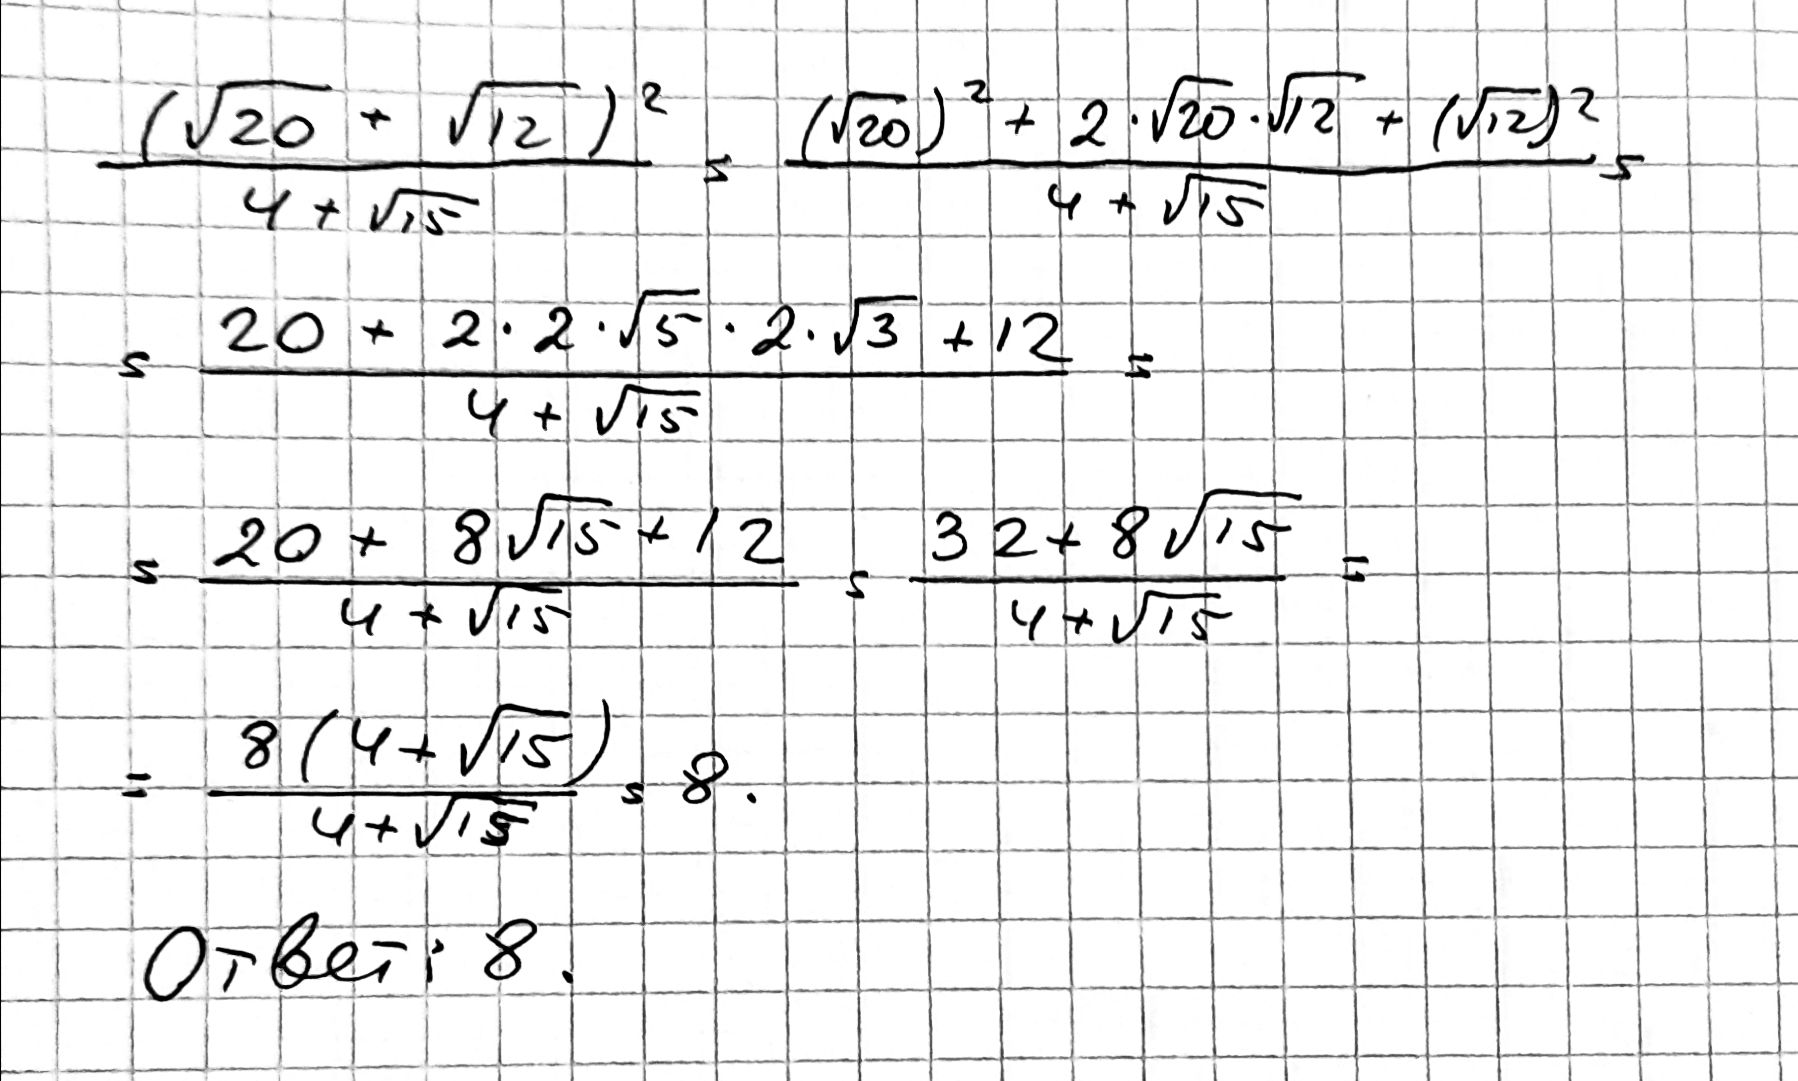 (√20 + √12)² / (4 + √15) = ((√20)² + 2·√20·√12 + (√12)²) / (4 + √15) =
= (20 + 2·2·√5·2·√3 + 12) / (4 + √15) =
= (20 + 8√15 + 12) / (4 + √15) = (32 + 8√15) / (4 + √15) =
= 8(4 + √15) / (4 + √15) = 8.
Ответ: 8.